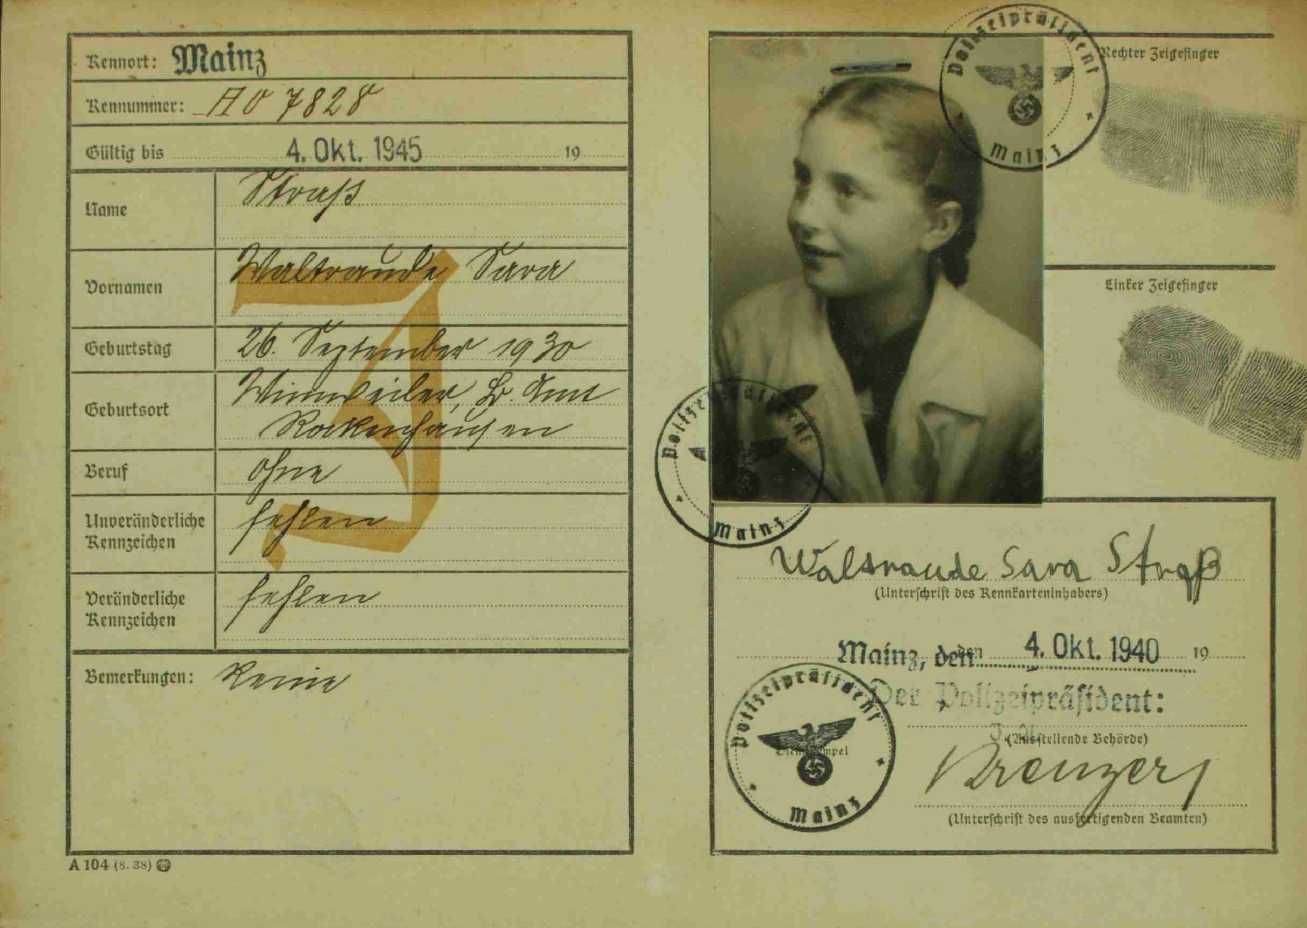 Kennort: Mainz
Kennummer: A 0 7828
Gültig bis 4. Okt. 1945 19
Name Straß
Vornamen Waltraude Sara
J
Geburtstag 26. September 1930
Geburtsort Winnweiler, B. Amt
Rockenhausen
Beruf ohne
Unveränderliche
Kennzeichen fehlen
Veränderliche
Kennzeichen fehlen
Bemerkungen: Keine
A 104 (8. 38)
Polizeipräsident
Mainz
Rechter Zeigefinger
Linker Zeigefinger
Polizeipräsident
Mainz
Waltraude Sara Straß
(Unterschrift des Kennkarteninhabers)
Mainz, den den 4. Okt. 1940 19
Der Polizeipräsident:
(Ausstellende Behörde)
Polizeipräsident
Mainz
(Unterschrift des ausfertigenden Beamten)